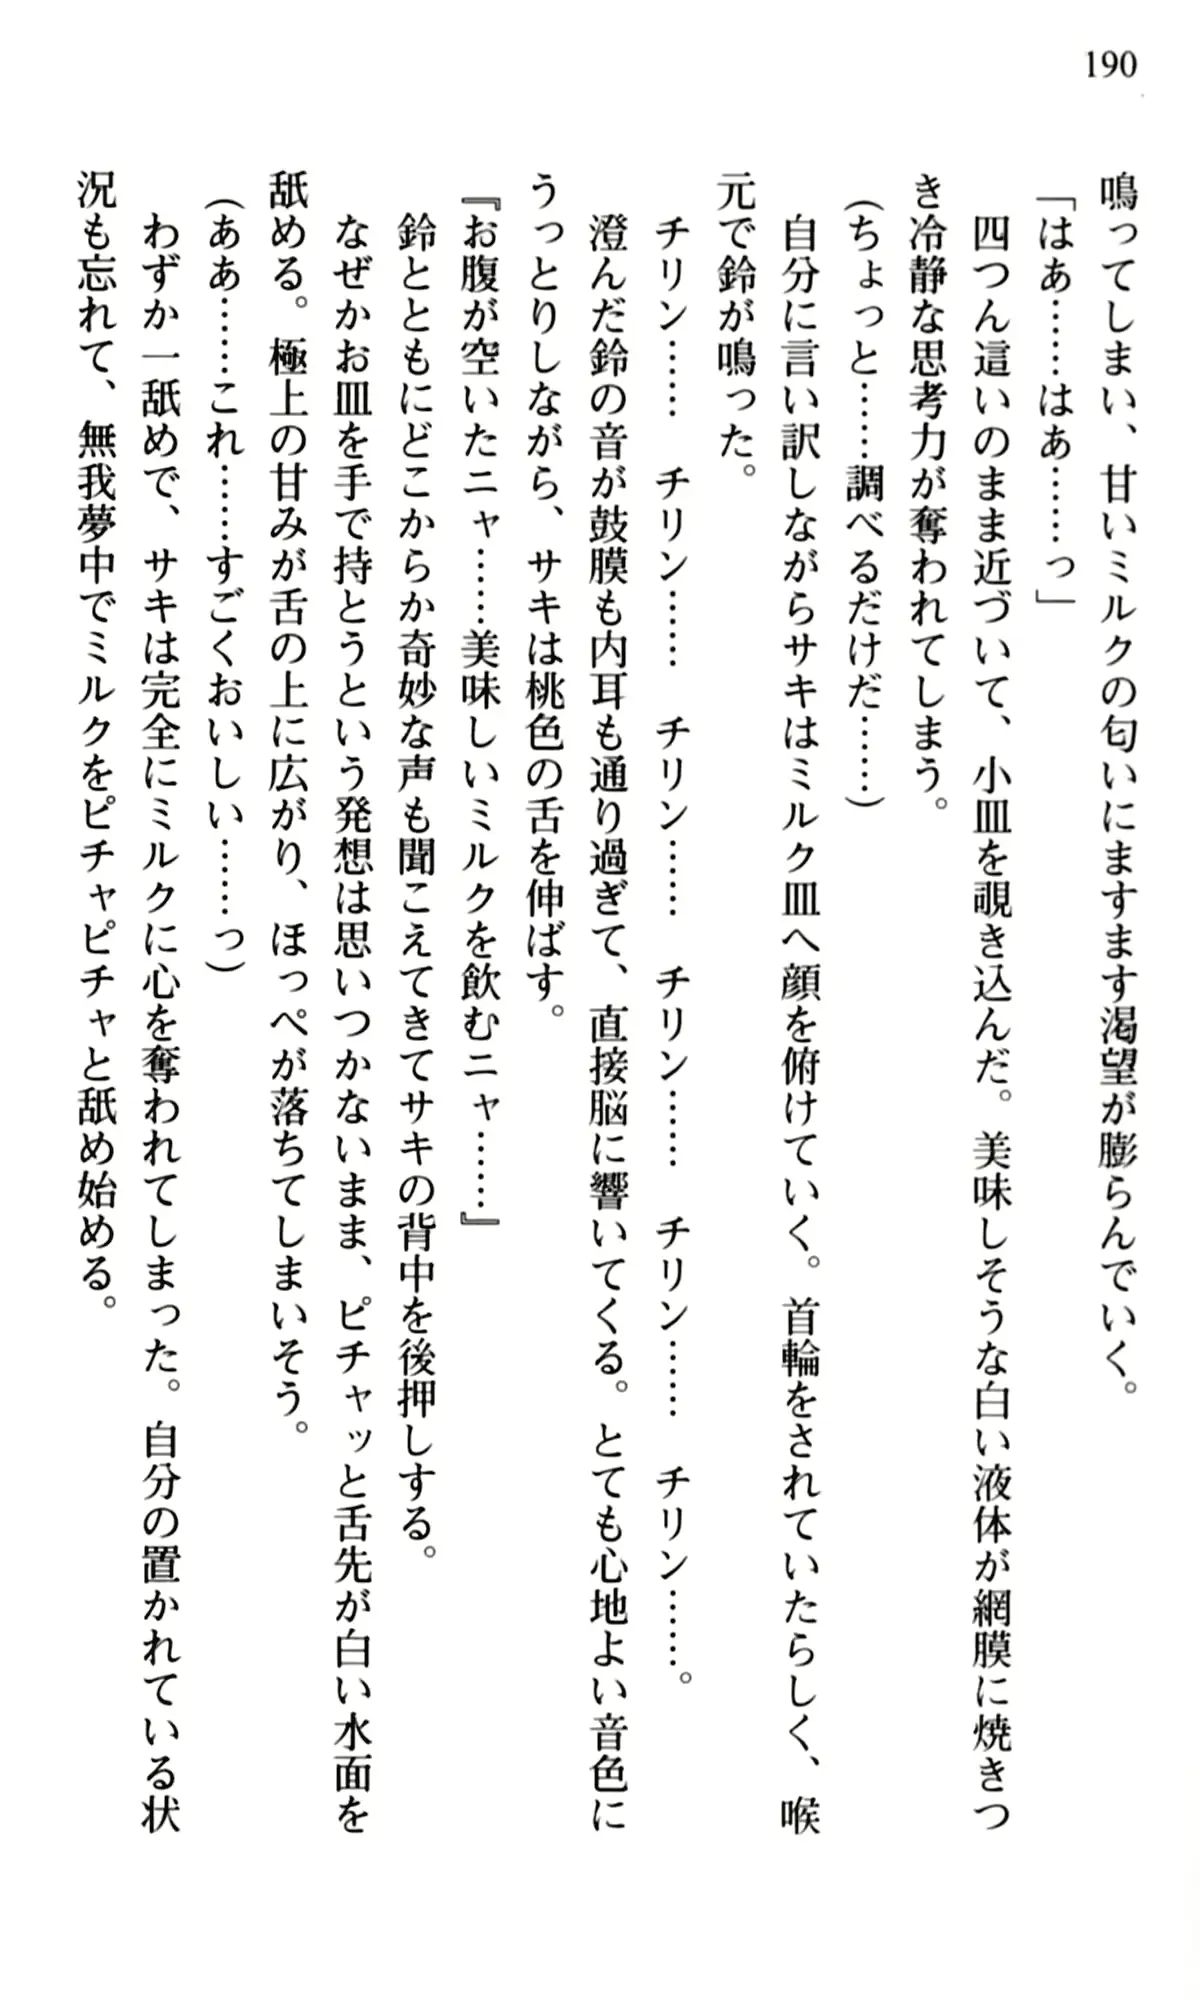 190
鳴ってしまい、甘いミルクの匂いにますます渇望が膨らんでいく。
「はあ……はあ……っ」
四つん這いのまま近づいて、小皿を覗き込んだ。美味しそうな白い液体が網膜に焼きつ
き冷静な思考力が奪われてしまう。
(ちょっと……調べるだけだ……)
自分に言い訳しながらサキはミルク皿へ顔を俯けていく。首輪をされていたらしく、喉
元で鈴が鳴った。
チリン…… チリン…… チリン…… チリン…… チリン…… チリン……。
澄んだ鈴の音が鼓膜も内耳も通り過ぎて、直接脳に響いてくる。とても心地よい音色に
うっとりしながら、サキは桃色の舌を伸ばす。
『お腹が空いたニャ……美味しいミルクを飲むニャ……』
鈴とともにどこからか奇妙な声も聞こえてきてサキの背中を後押しする。
なぜかお皿を手で持とうという発想は思いつかないまま、ピチャッと舌先が白い水面を
舐める。極上の甘みが舌の上に広がり、ほっぺが落ちてしまいそう。
(ああ……これ……すごくおいしい……っ)
わずか一舐めで、サキは完全にミルクに心を奪われてしまった。自分の置かれている状
況も忘れて、無我夢中でミルクをピチャピチャと舐め始める。